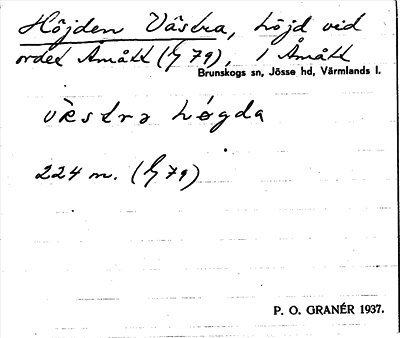 Höjden Västra, höjd vid
ordet Åmått (G 79), 1 Åmått
Brunskogs sn, Jösse hd, Värmlands l.
vèstra hø̀gda
224 m. (G 79)
P. O. GRANÉR 1937.